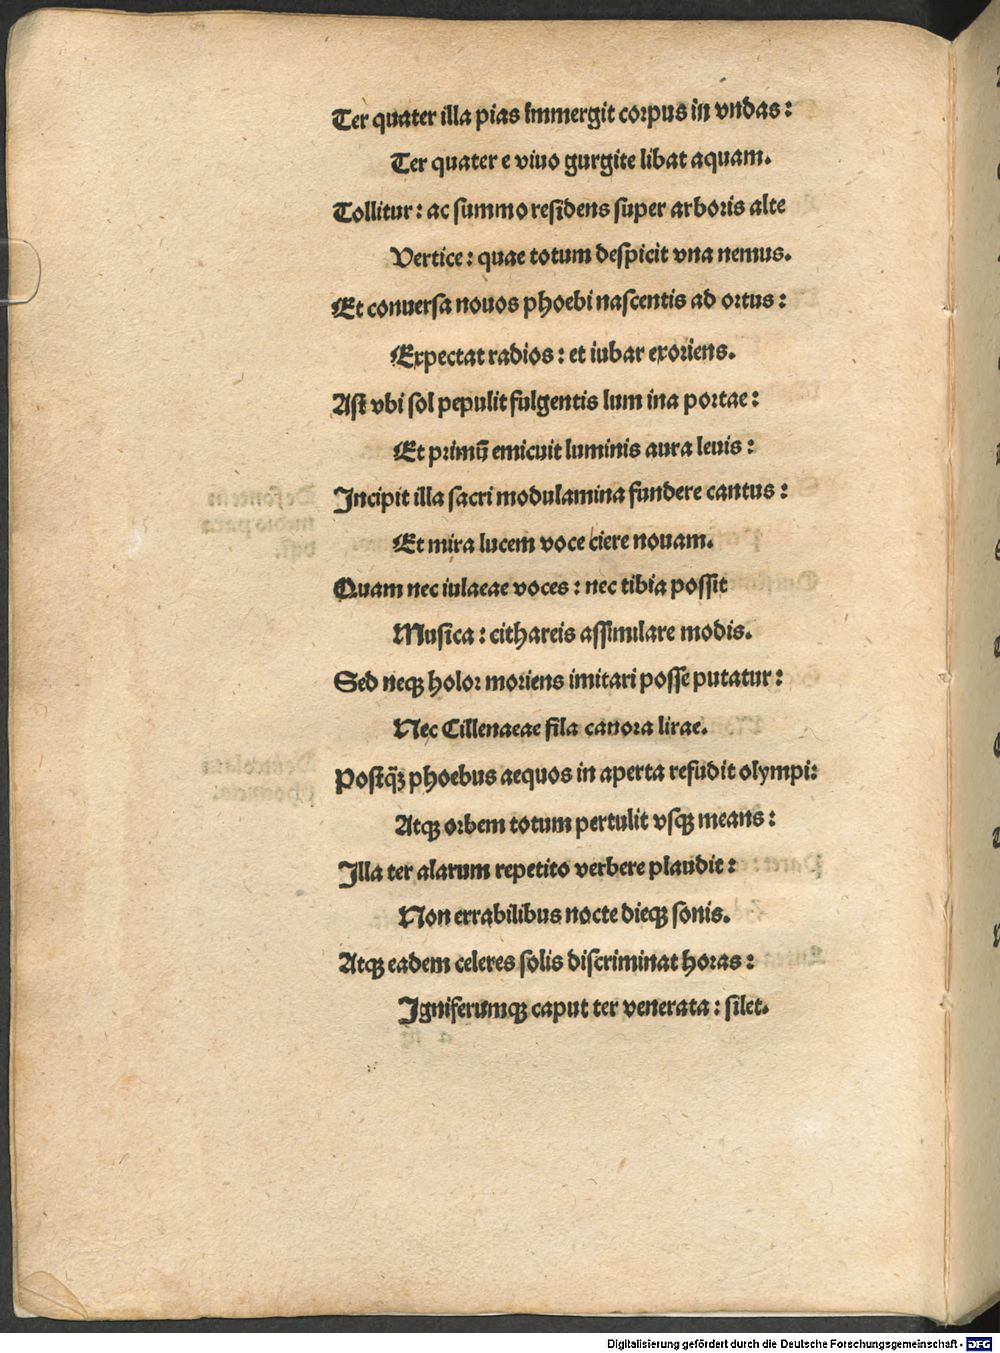 Ter quater illa pias immergit corpus in vndas:
Ter quater e viuo gurgite libat aquam.
Tollitur: ac summo residens super arboris alte
Vertice: quae totum despicit vna nemus.
Et conuersa nouos phoebi nascentis ad ortus:
Expectat radios: et iubar exoriens.
Ast vbi sol pepulit fulgentis lum ina portae:
Et primū emicuit luminis aura leuis:
Incipit illa sacri modulamina fundere cantus:
Et mira lucem voce ciere nouam.
Quam nec iulaeae voces: nec tibia possit
Musica: cithareis assimulare modis.
Sed neqꝫ holor moriens imitari posse putatur:
Nec Cillenaeae fila canora lirae.
Postq̄ꝫ phoebus aequos in aperta refudit olympi:
Atqꝫ orbem totum pertulit vsqꝫ means:
Illa ter alarum repetito verbere plaudit:
Non errabilibus nocte dieqꝫ sonis.
Atqꝫ eadem celeres solis discriminat horas:
Igniferumqꝫ caput ter venerata: silet.
Digitalisierung gefördert durch die Deutsche Forschungsgemeinschaft - DFG